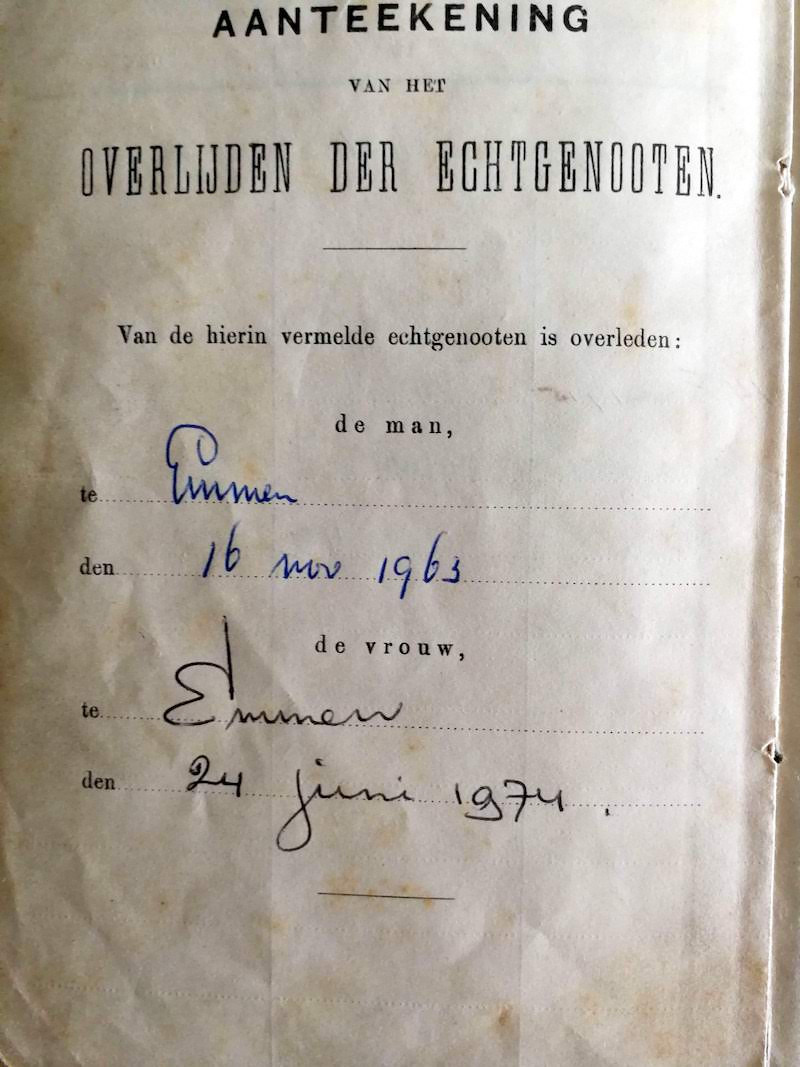 AANTEEKENING
VAN HET
OVERLIJDEN DER ECHTGENOOTEN.
Van de hierin vermelde echtgenooten is overleden:
de man,
te Emmen
den 16 nov 1963
de vrouw,
te Emmen
den 24 juni 1974.